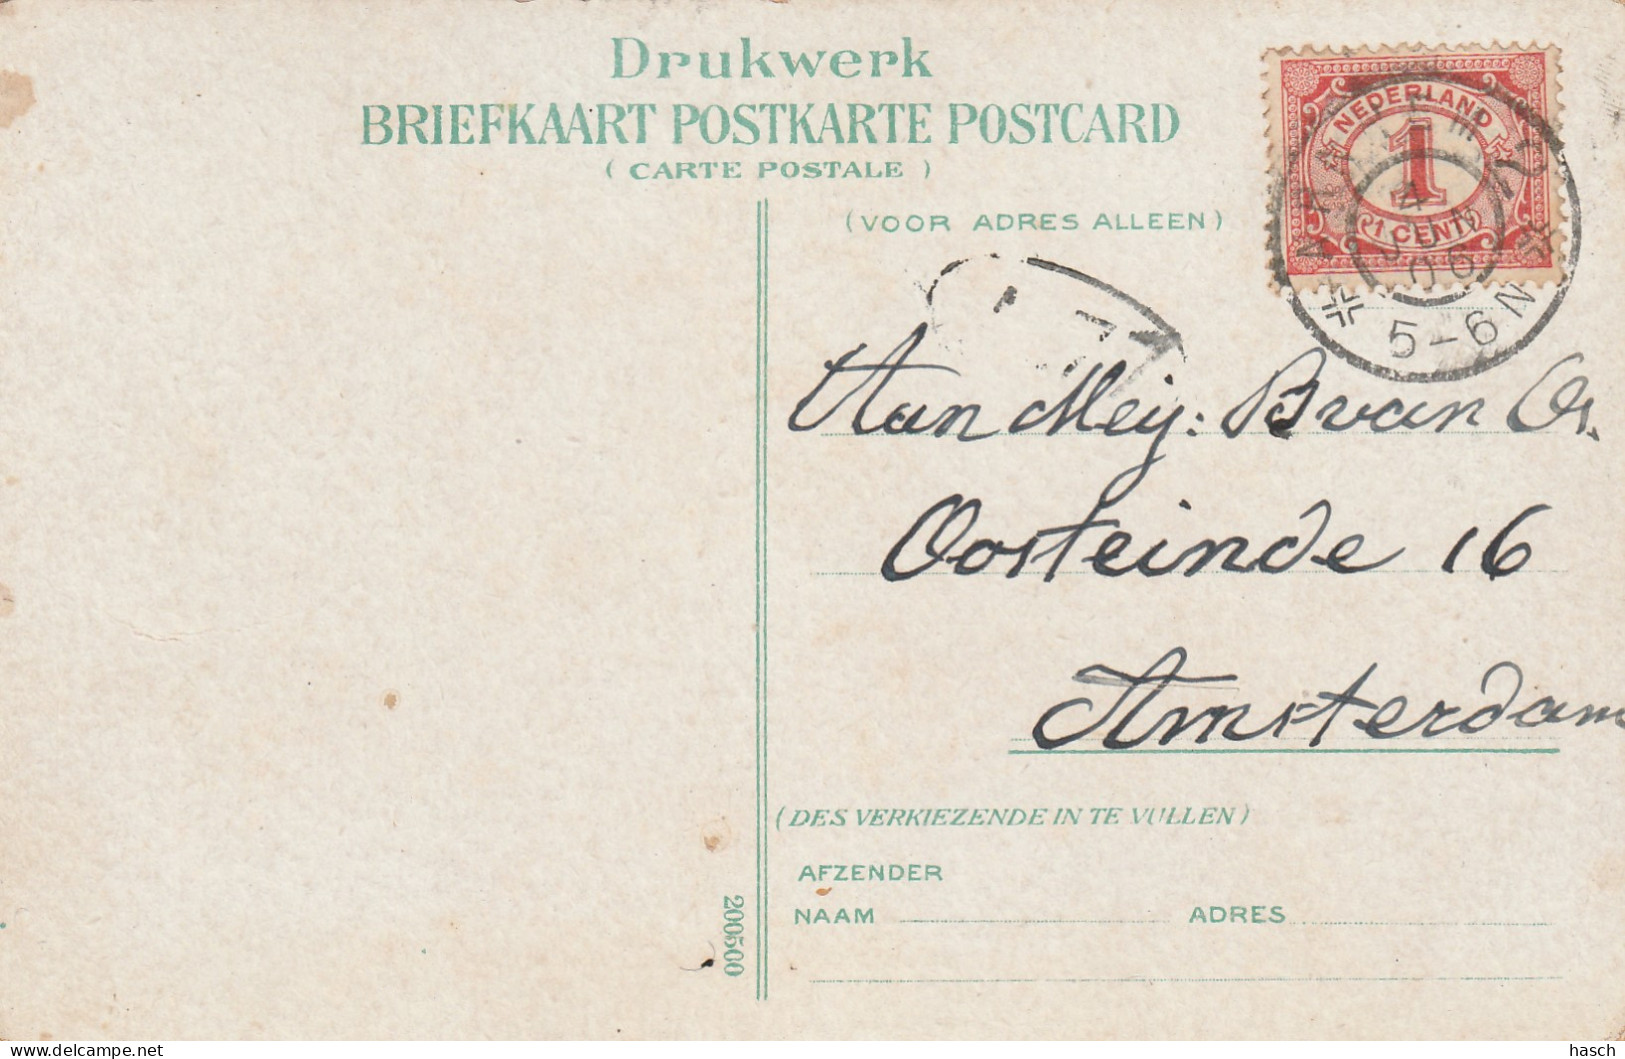 Drukwerk
BRIEFKAART POSTKARTE POSTCARD
( CARTE POSTALE )
(VOOR ADRES ALLEEN)
NEDERLAND
1
1 CENT
HAARLEM 2
4
JUN
06
5-6 N
Aan Mej: B van Os.
Oosteinde 16
Amsterdam
(DES VERKIEZENDE IN TE VULLEN)
AFZENDER
NAAM ADRES
200500
delcampe.net
hasch